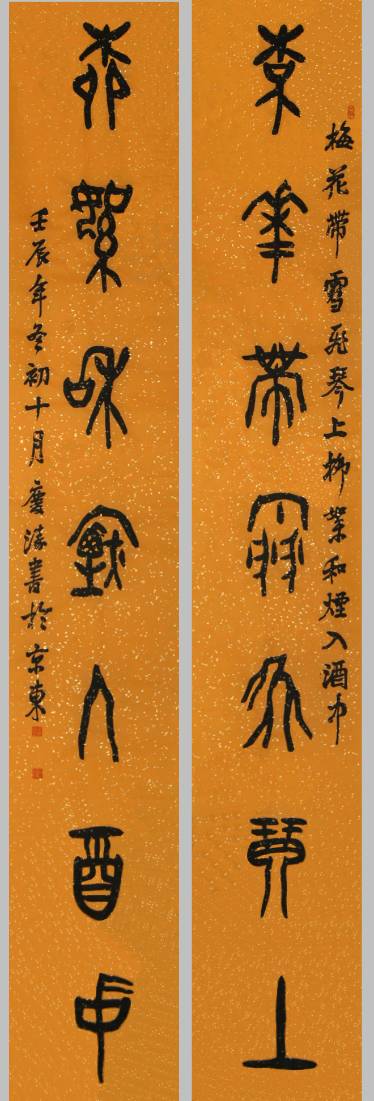 梅花帶雪飛琴上柳絮和煙入酒中
梅華帶雪飛琴上
柳絮和煙入酒中
壬辰年冬初十月慶書於京東